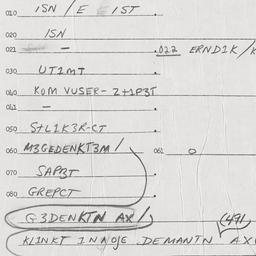 010 ISN / E EIST
020 ISN
021 - .022 ERNDIK/
030 UTIMT
040 KOM VUSER- Z+1P3T
041 -
050 S+L1K3R-CT
060 M3GEDENKT3M/ 061 O
070 SAP3T
080 GREPCT
G3DENKTN AX/ (49)
KLINKT DEMANTN AX